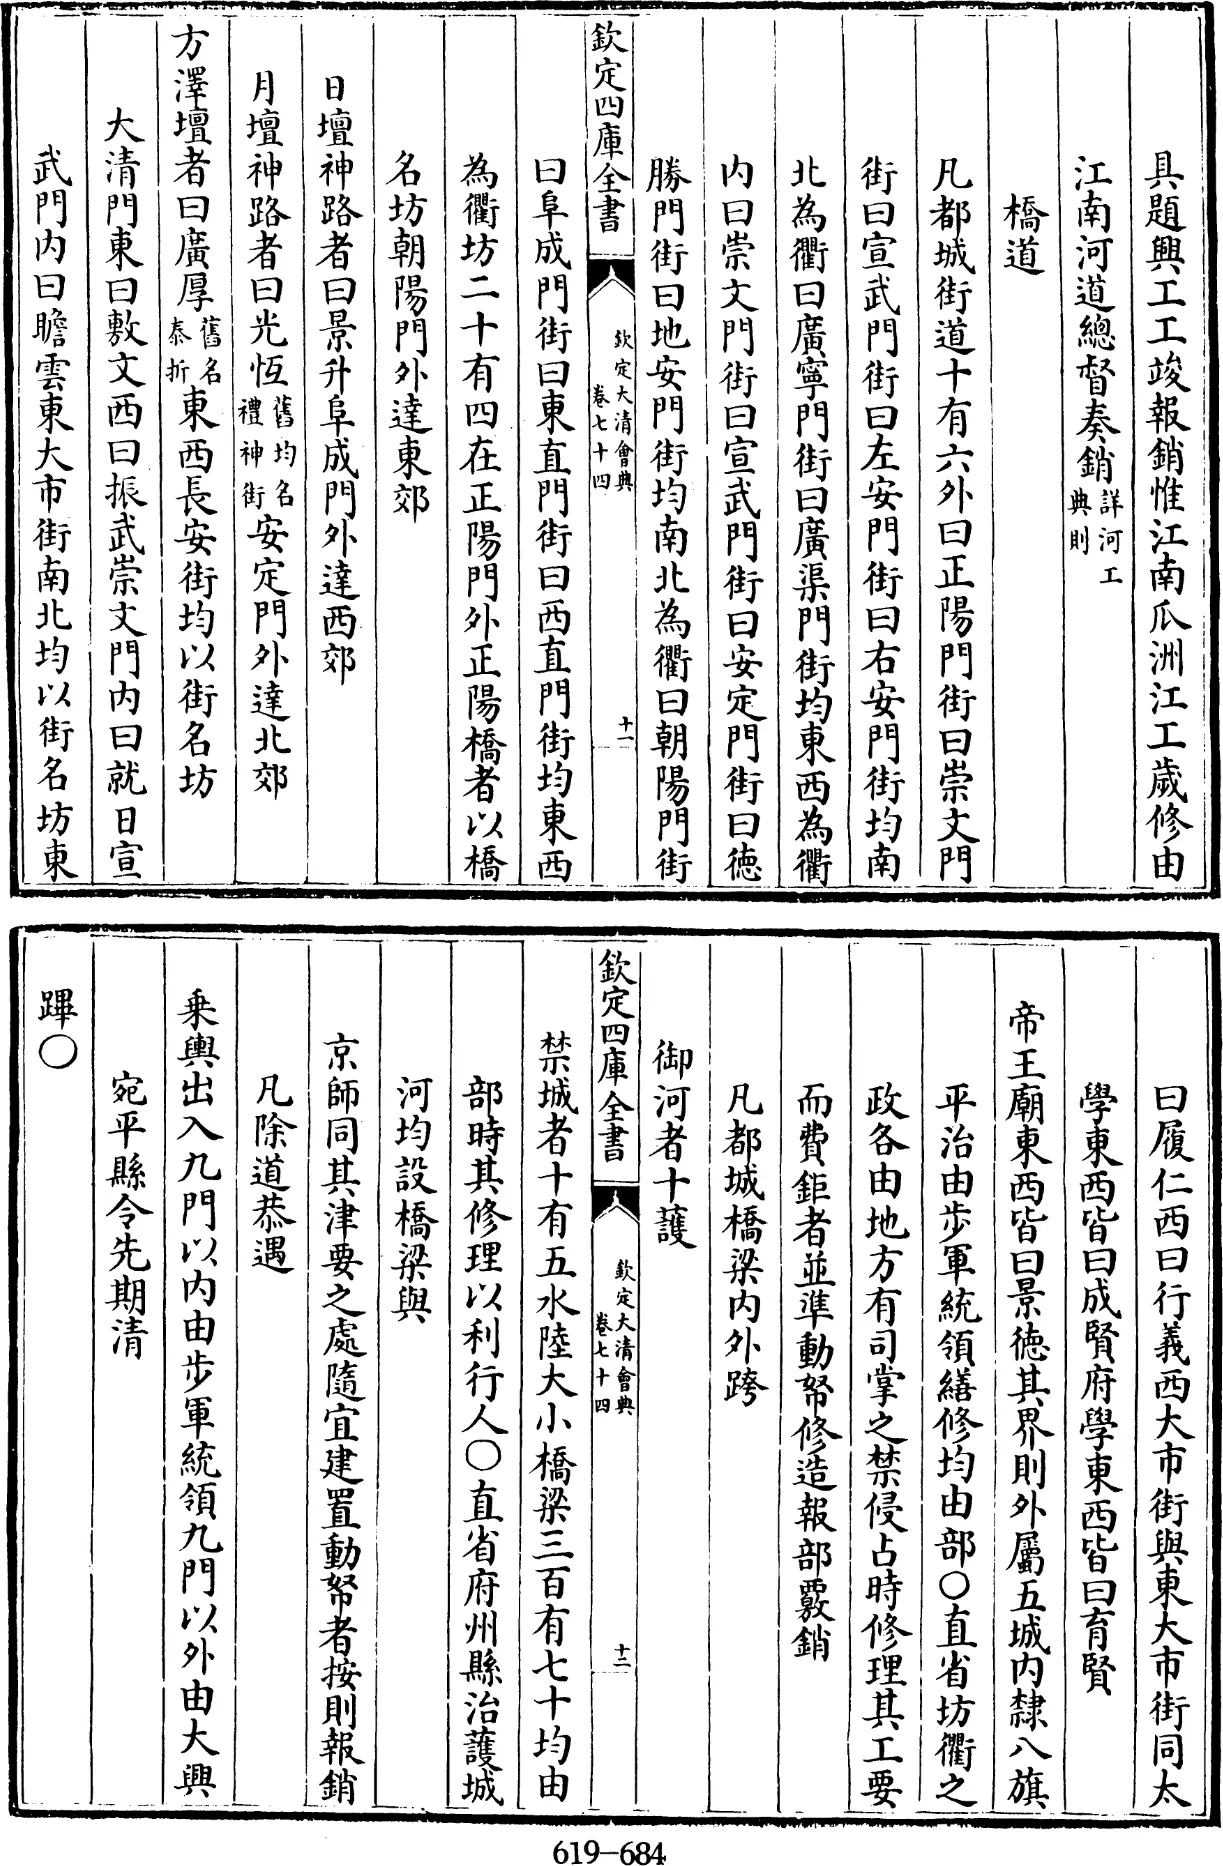 具題興工工竣報銷惟江南瓜洲江工歲修由
江南河道總督奏銷詳河工典則
橋道
凡都城街道十有六外曰正陽門街曰崇文門
街曰宣武門街曰左安門街曰右安門街均南
北為衢曰廣寧門街曰廣渠門街均東西為衢
内曰崇文門街曰宣武門街曰安定門街曰德
勝門街曰地安門街均南北為衢曰朝陽門街
欽定四庫全書
欽定大清會典
卷七十四
十一
曰阜成門街曰東直門街曰西直門街均東西
為衢坊二十有四在正陽門外正陽橋者以橋
名坊朝陽門外達東郊
日壇神路者曰景升阜成門外達西郊
月壇神路者曰光恆舊均名禮神街安定門外達北郊
方澤壇者曰廣厚舊名泰折東西長安街均以街名坊
大清門東曰敷文西曰振武崇文門内曰就日宣
武門内曰瞻雲東大市街南北均以街名坊東
曰履仁西曰行義西大市街與東大市街同太
學東西皆曰成賢府學東西皆曰育賢
帝王廟東西皆曰景德其界則外屬五城内隸八旗
平治由步軍統領繕修均由部○直省坊衢之
政各由地方有司掌之禁侵占時修理其工要
而費鉅者並準動帑修造報部覈銷
凡都城橋梁内外跨
御河者十護
欽定四庫全書
欽定大清會典
卷七十四
十二
禁城者十有五水陸大小橋梁三百有七十均由
部時其修理以利行人○直省府州縣治護城
河均設橋梁與
京師同其津要之處隨宜建置動帑者按則報銷
凡除道恭遇
乗輿出入九門以内由步軍統領九門以外由大興
宛平縣令先期清
蹕○
619-684